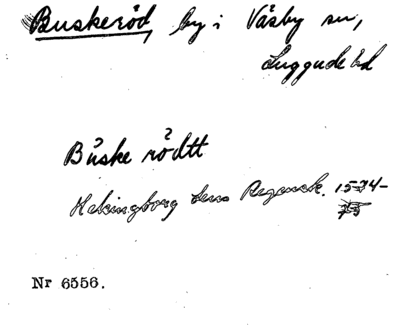 Buskeröd, by i Väsby sn,
Luggude hd
Buske rödtt
Helsingborg Lens Regensk. 1574-
75
Nr 6556.